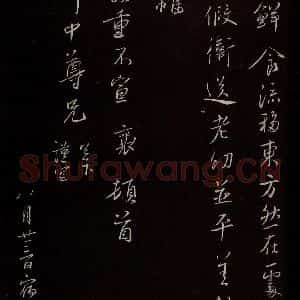 鮮食流移東方在處
假衛送老幼並平善
幅
重不宣 襄頓首
中尊兄 謹空
八月廿三日宿
Shufawang.CN